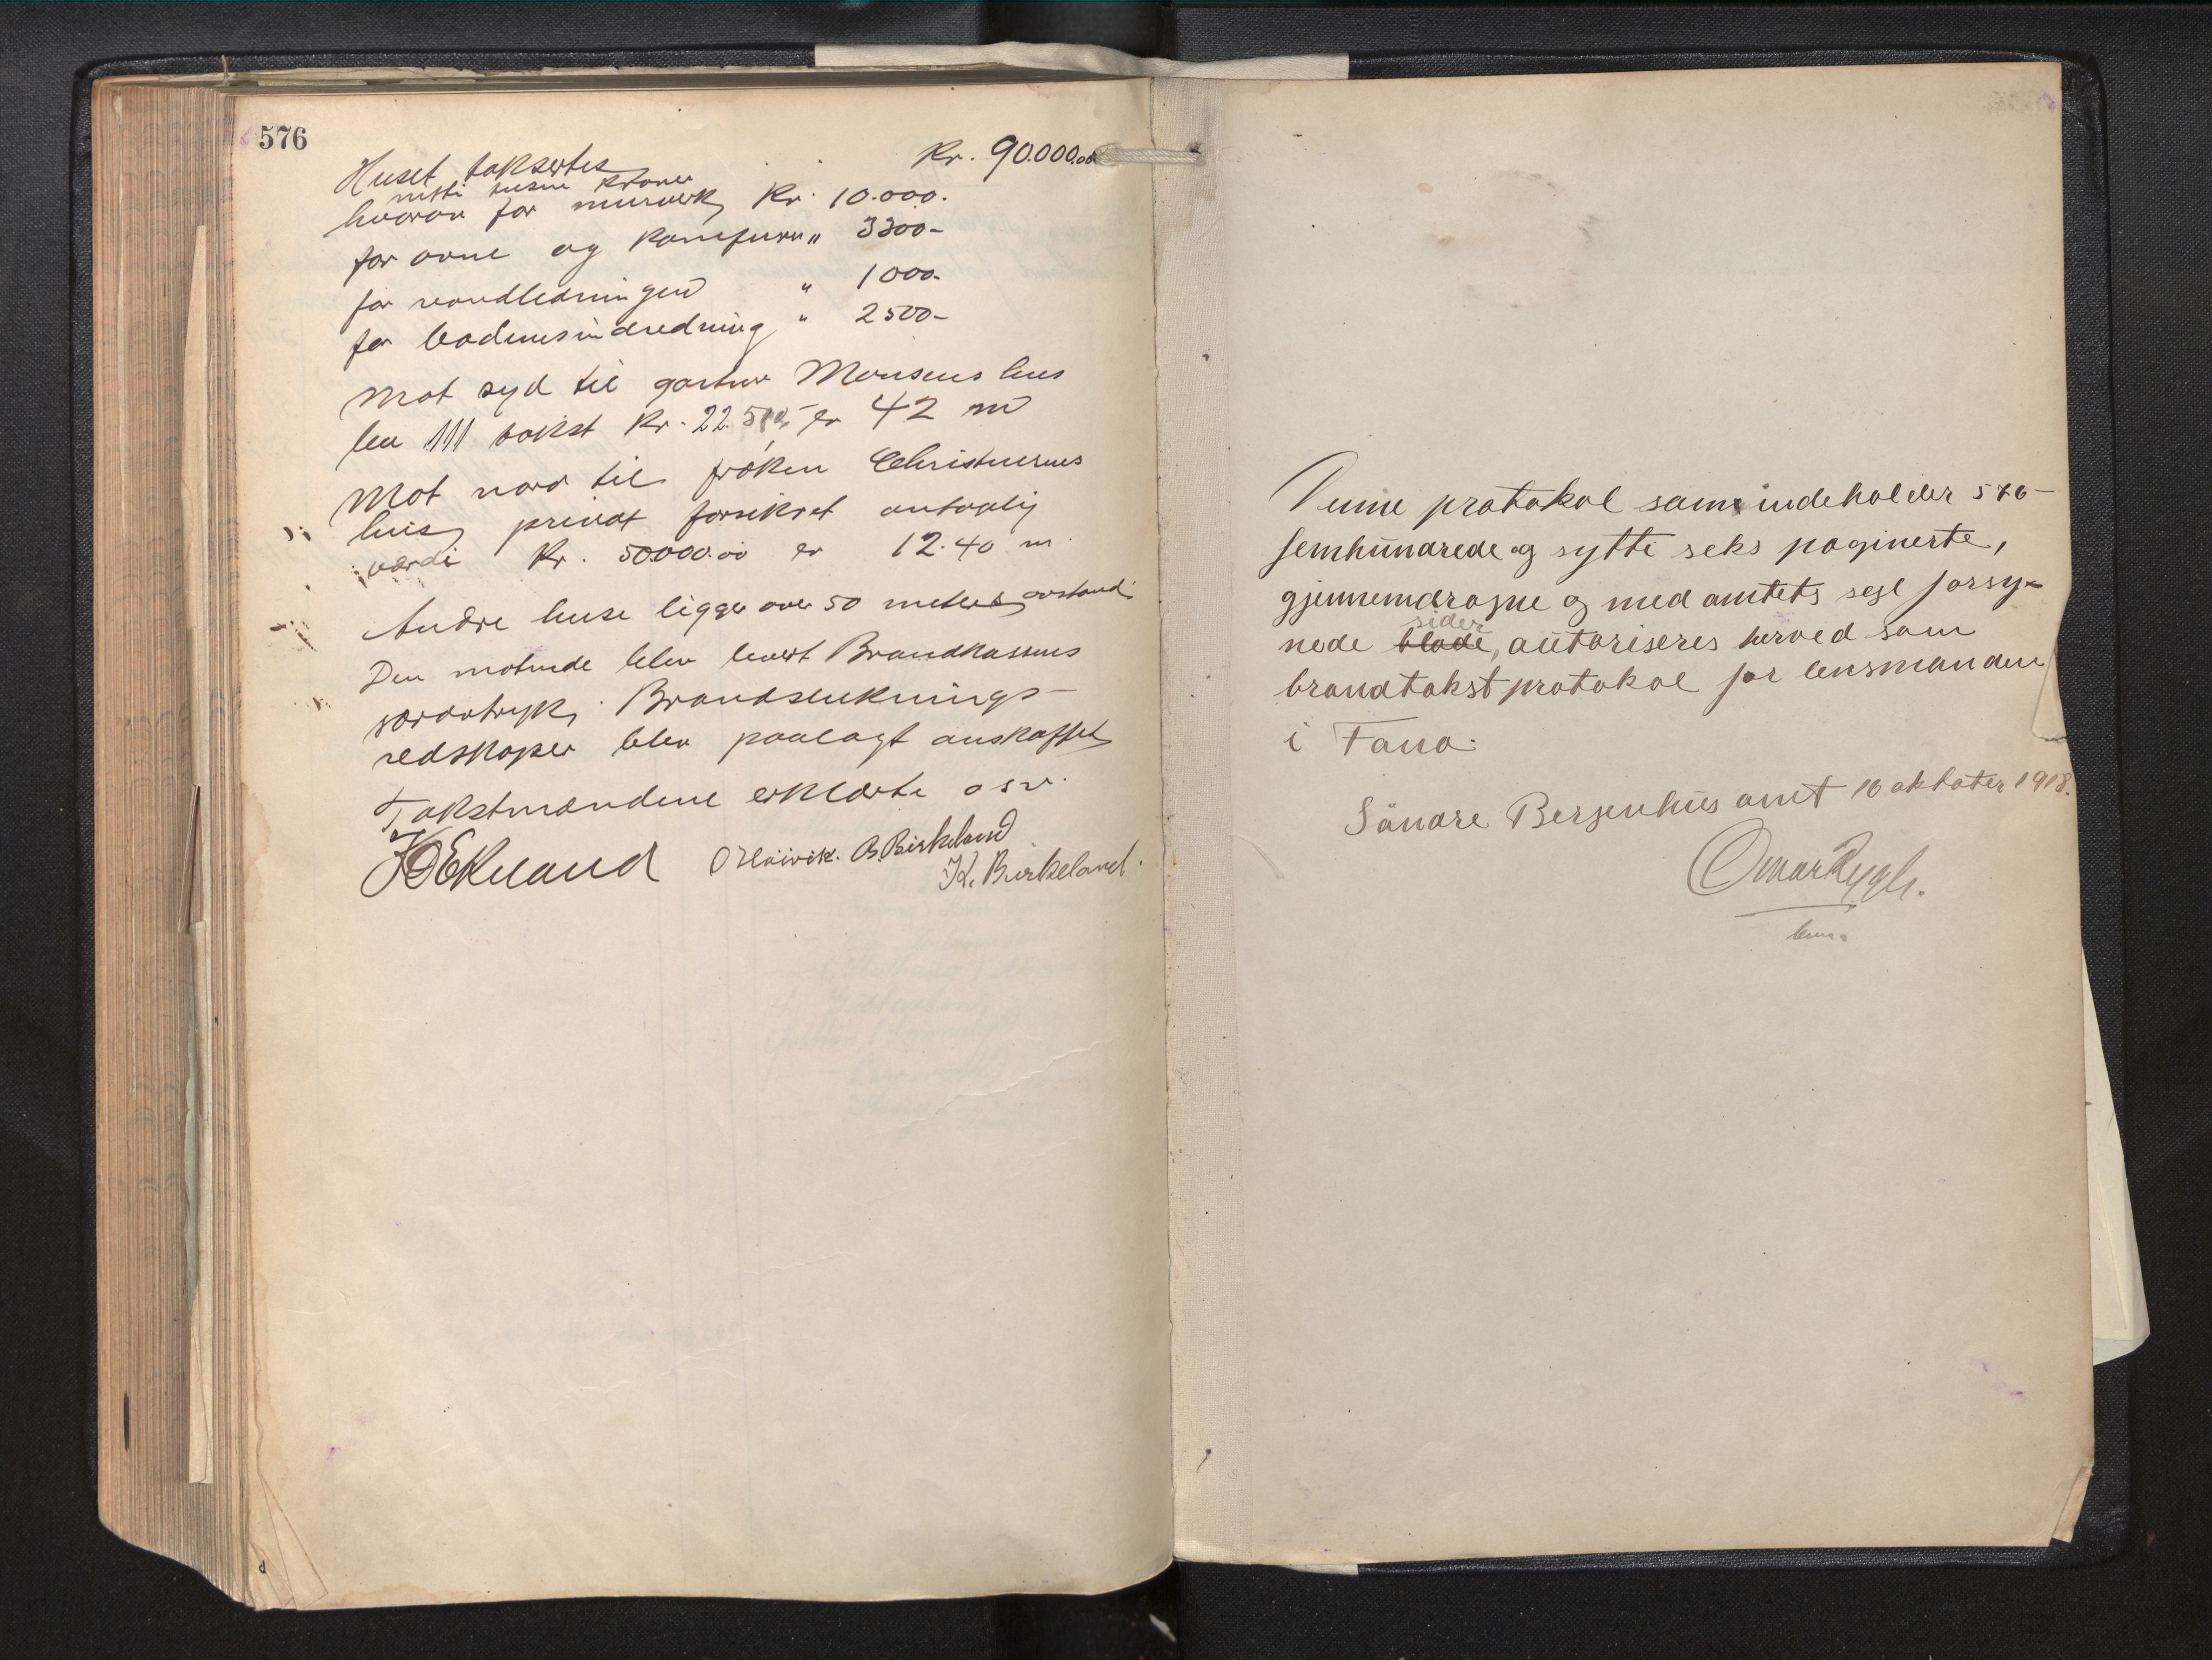 576
Huset taksertes Kr. 90.000.00
nitti tusen kroner
hvorav for murverk Kr. 10.000.
for ovne og komfurer " 3300-
for vandledningen " 1000.
for bodens indredning " 2500-
Mot syd til gartner Monsens hus
lnr 111 takst Kr. 22.500,- er 42 m
Mot nord til frøken Christensens
hus, privat forsikret antagelig
værdi Kr. 50000.00 er 12.40 m.
Andre huse ligger over 50 meters avstand.
Den møtende blev levert Brandkassens
særavtryk. Brandsluknings-
redskaper blev paalagt anskaffet
Takstmændene erklærte osv.
O Høivik. B. Birkeland
K. Birkeland.
Denne protokol som indeholder 576-
femhundrede og sytti seks paginerte,
gjennemdragne og med amtets segl forsy-
sider
nede blade, autoriseres herved som
brandtakstprotokol for lensmanden
i Fana.
Söndre Bergenhus amt 16 oktober 1918.